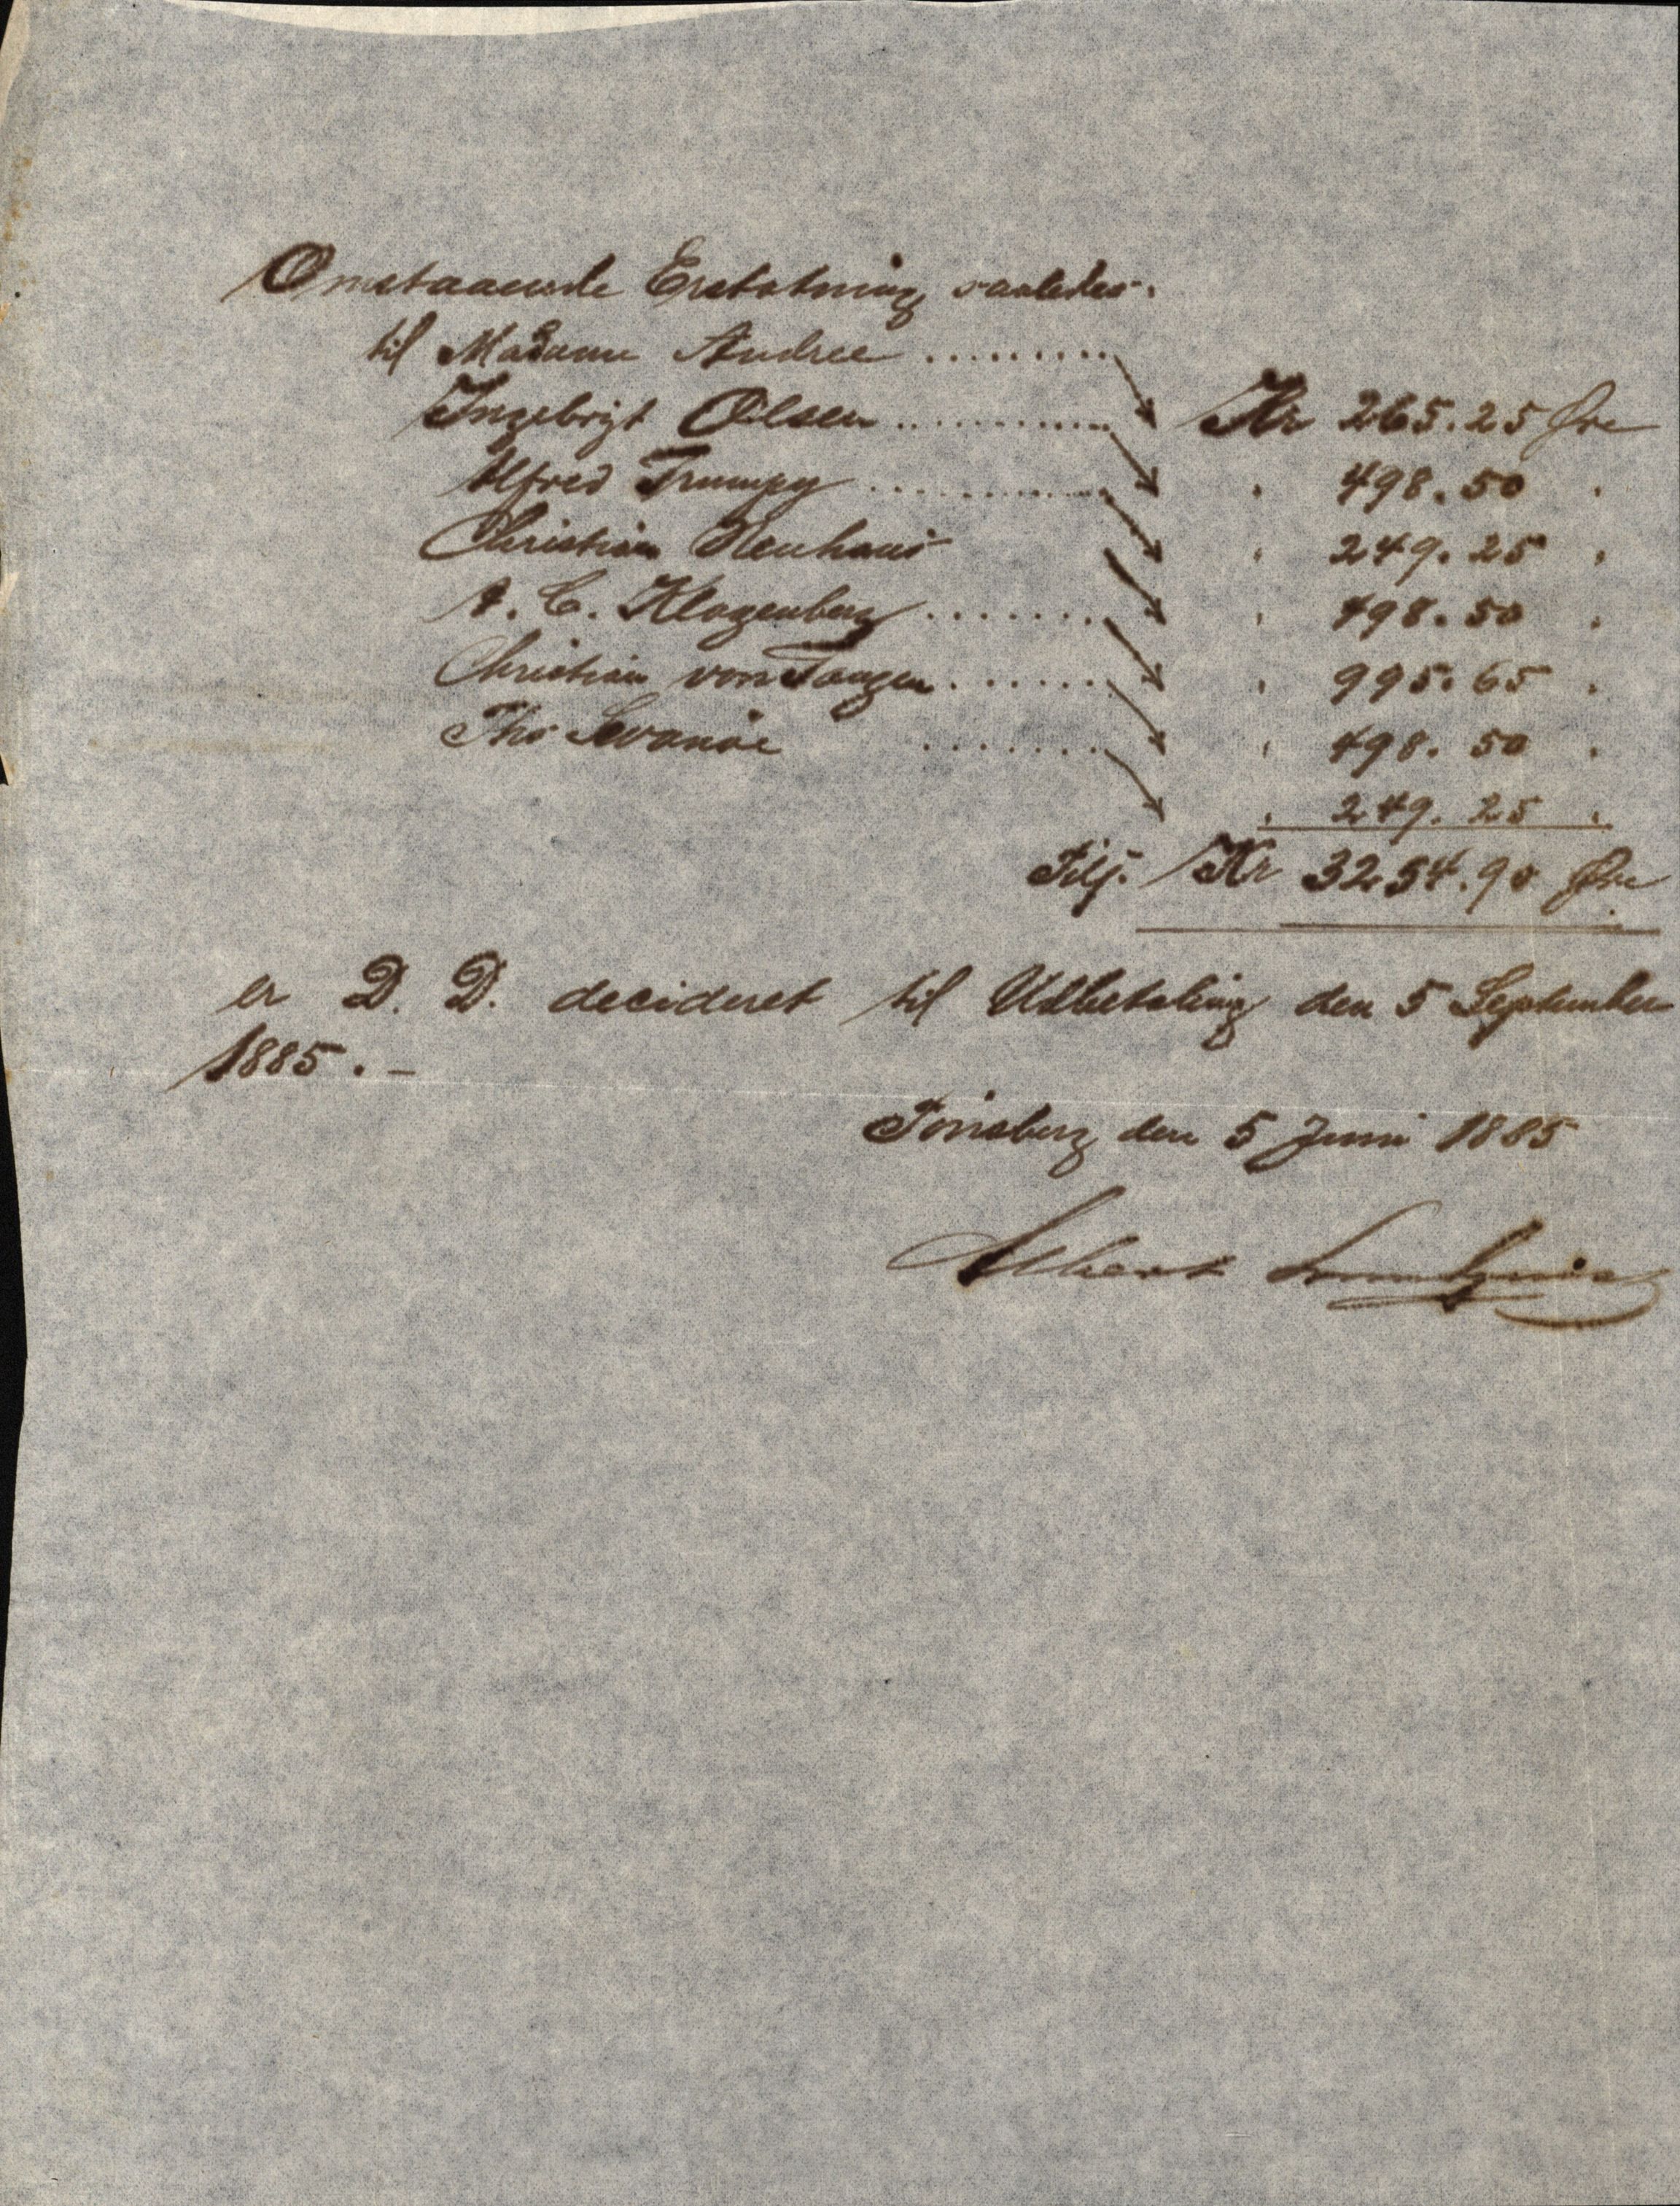 Omstaaende Erstatning saaledes:
til Madame Andree ......... Kr 265.25 Øre
Ingebrigt Olsen ............ " 498.50 "
Alfred Trumpy ............. " 249.25 "
Christian Neuhaus " 498.50 "
A. C. Klagenberg ....... " 995.65 "
Christian von Tangen ....... " 498.50 "
Ths Svanöe ....... " 249.25 "
Tils. Kr 3254.90 Øre
er D. D. decideret til Udbetaling den 5 September
1885. –
Tönsberg den 5 Juni 1885
Albert